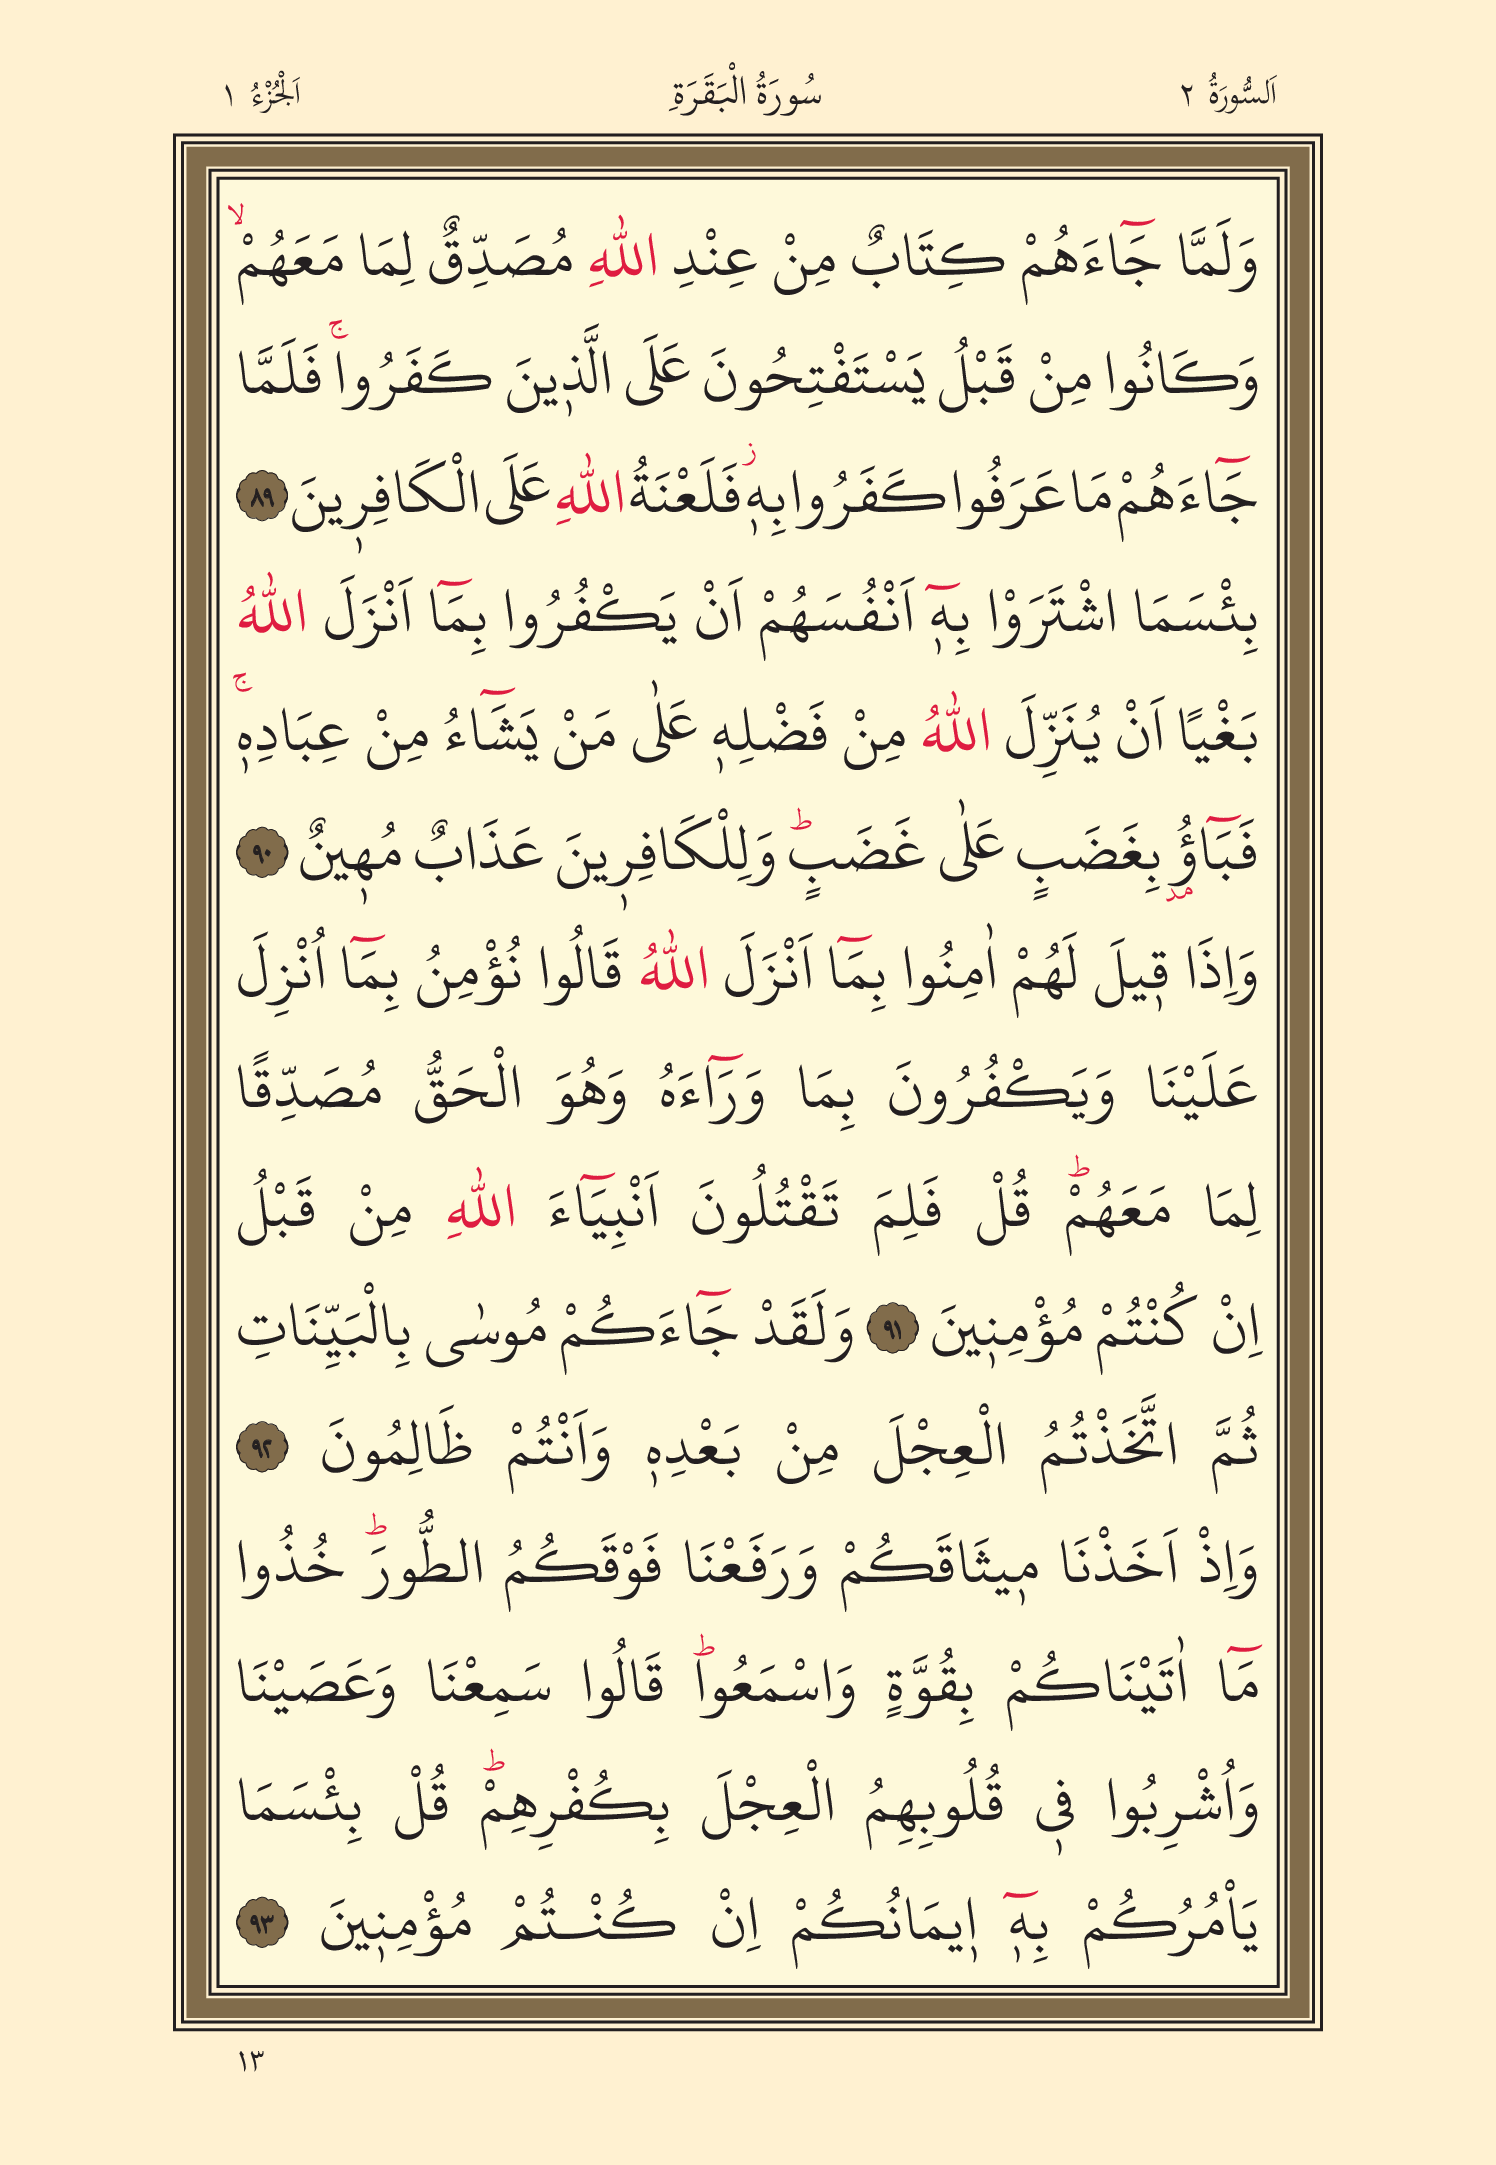 اَلسُّورَةُ ٢ سُورَةُ الْبَقَرَةِ اَلْجُزْءُ ١
وَلَمَّا جَٓاءَهُمْ كِتَابٌ مِنْ عِنْدِ اللّٰهِ مُصَدِّقٌ لِمَا مَعَهُمْۙ
وَكَانُوا مِنْ قَبْلُ يَسْتَفْتِحُونَ عَلَى الَّذ۪ينَ كَفَرُواۚ فَلَمَّا
جَٓاءَهُمْ مَا عَرَفُوا كَفَرُوا بِه۪ۘ فَلَعْنَةُ اللّٰهِ عَلَى الْكَافِر۪ينَ ٨٩
بِئْسَمَا اشْتَرَوْا بِه۪ٓ اَنْفُسَهُمْ اَنْ يَكْفُرُوا بِمَٓا اَنْزَلَ اللّٰهُ
بَغْيًا اَنْ يُنَزِّلَ اللّٰهُ مِنْ فَضْلِه۪ عَلٰى مَنْ يَشَٓاءُ مِنْ عِبَادِه۪ۚ
فَبَٓاؤُ۫ بِغَضَبٍ عَلٰى غَضَبٍۜ وَلِلْكَافِر۪ينَ عَذَابٌ مُه۪ينٌ ٩٠
وَاِذَا ق۪يلَ لَهُمْ اٰمِنُوا بِمَٓا اَنْزَلَ اللّٰهُ قَالُوا نُؤْمِنُ بِمَٓا اُنْزِلَ
عَلَيْنَا وَيَكْفُرُونَ بِمَا وَرَٓاءَهُ وَهُوَ الْحَقُّ مُصَدِّقًا
لِمَا مَعَهُمْۜ قُلْ فَلِمَ تَقْتُلُونَ اَنْبِيَٓاءَ اللّٰهِ مِنْ قَبْلُ
اِنْ كُنْتُمْ مُؤْمِن۪ينَ ٩١ وَلَقَدْ جَٓاءَكُمْ مُوسٰى بِالْبَيِّنَاتِ
ثُمَّ اتَّخَذْتُمُ الْعِجْلَ مِنْ بَعْدِه۪ وَاَنْتُمْ ظَالِمُونَ ٩٢
وَاِذْ اَخَذْنَا م۪يثَاقَكُمْ وَرَفَعْنَا فَوْقَكُمُ الطُّورَۜ خُذُوا
مَٓا اٰتَيْنَاكُمْ بِقُوَّةٍ وَاسْمَعُواۜ قَالُوا سَمِعْنَا وَعَصَيْنَا
وَاُشْرِبُوا ف۪ي قُلُوبِهِمُ الْعِجْلَ بِكُفْرِهِمْۜ قُلْ بِئْسَمَا
يَاْمُرُكُمْ بِه۪ٓ ا۪يمَانُكُمْ اِنْ كُنْـتُمْ مُؤْمِن۪ينَ ٩٣
١٣